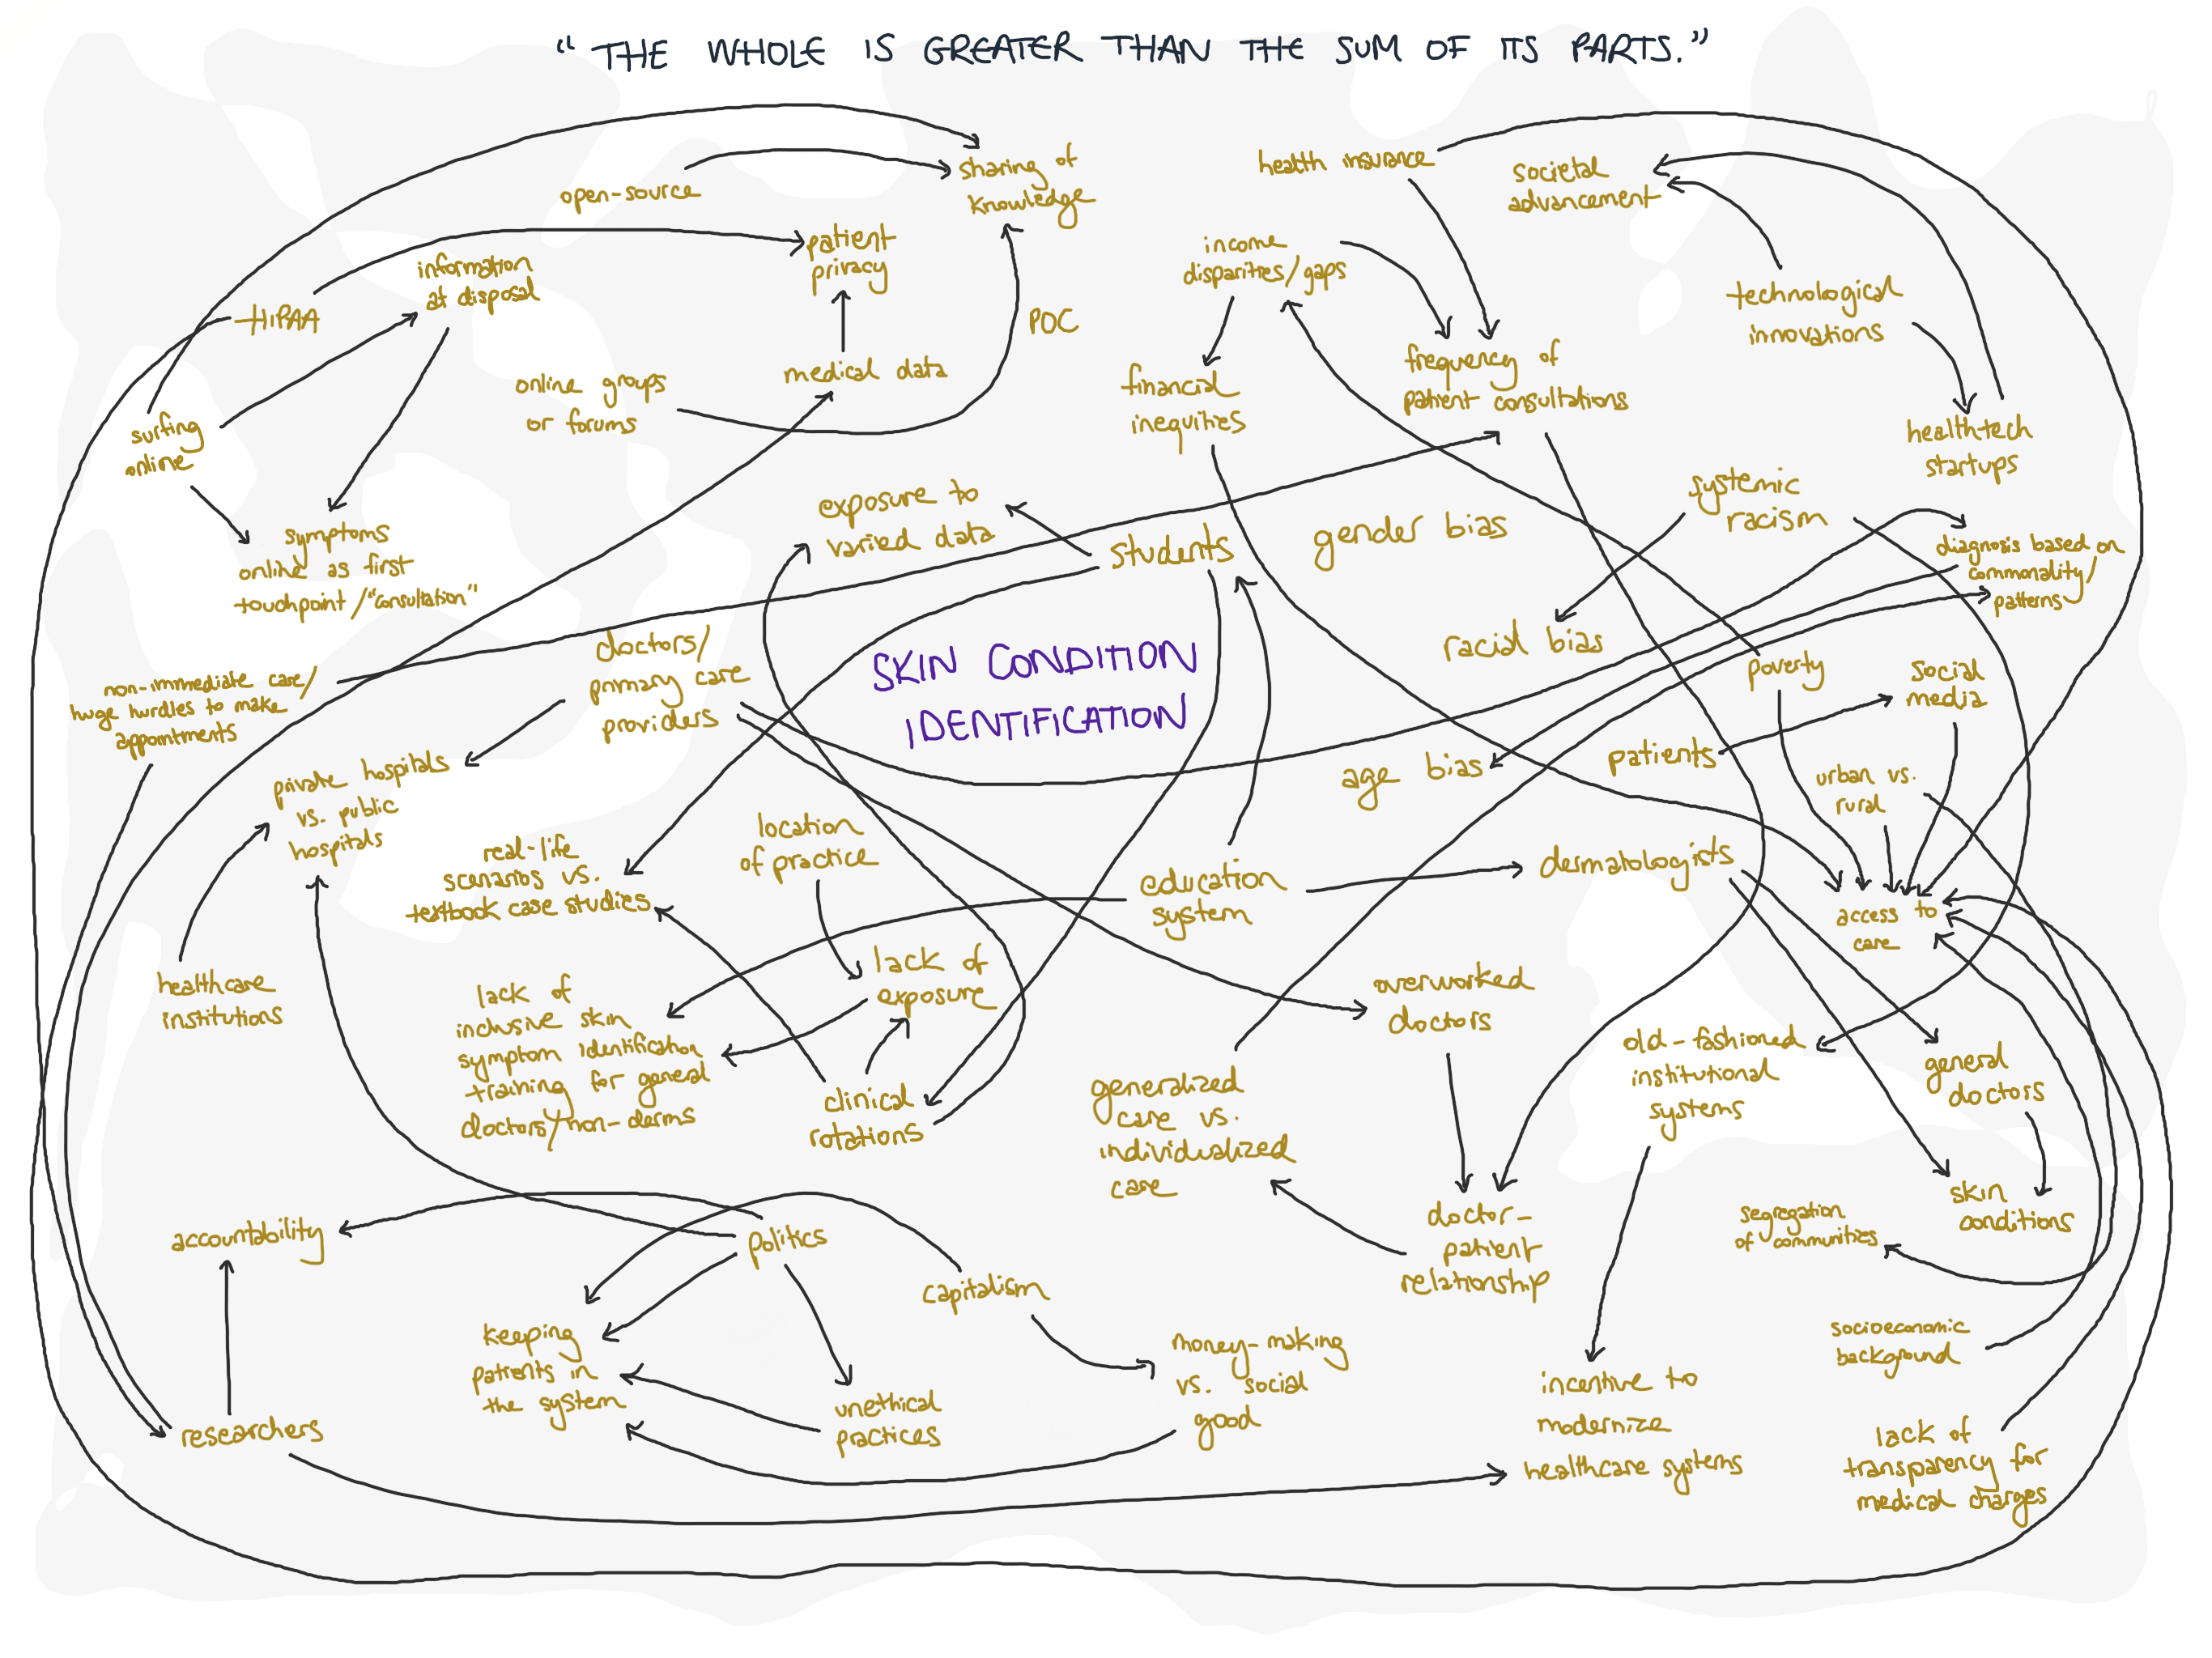 “THE WHOLE IS GREATER THAN THE SUM OF ITS PARTS.”
open-source
sharing of
knowledge
health insurance
societal
advancement
patient
privacy
information
at disposal
HIPAA
income
disparities/gaps
technological
innovations
POC
online groups
or forums
medical data
financial
inequities
frequency of
patient consultations
surfing
online
healthtech
startups
symptoms
online as first
touchpoint/"consultation"
exposure to
varied data
students
gender bias
systemic
racism
diagnosis based on
commonality/
patterns
racial bias
doctors/
primary care
providers
SKIN CONDITION
IDENTIFICATION
poverty
social
media
non-immediate care/
huge hurdles to make
appointments
private hospitals
vs. public
hospitals
age bias
patients
urban vs.
rural
real-life
scenarios vs.
textbook case studies
location
of practice
education
system
dermatologists
access to
care
healthcare
institutions
lack of
inclusive skin
symptom identification
training for general
doctors/non-derms
lack of
exposure
clinical
rotations
overworked
doctors
generalized
care vs.
individualized
care
old-fashioned
institutional
systems
general
doctors
skin
conditions
segregation
of communities
doctor-
patient
relationship
accountability
politics
capitalism
keeping
patients in
the system
unethical
practices
money-making
vs. social
good
incentive to
modernize
healthcare systems
socioeconomic
background
lack of
transparency for
medical charges
researchers